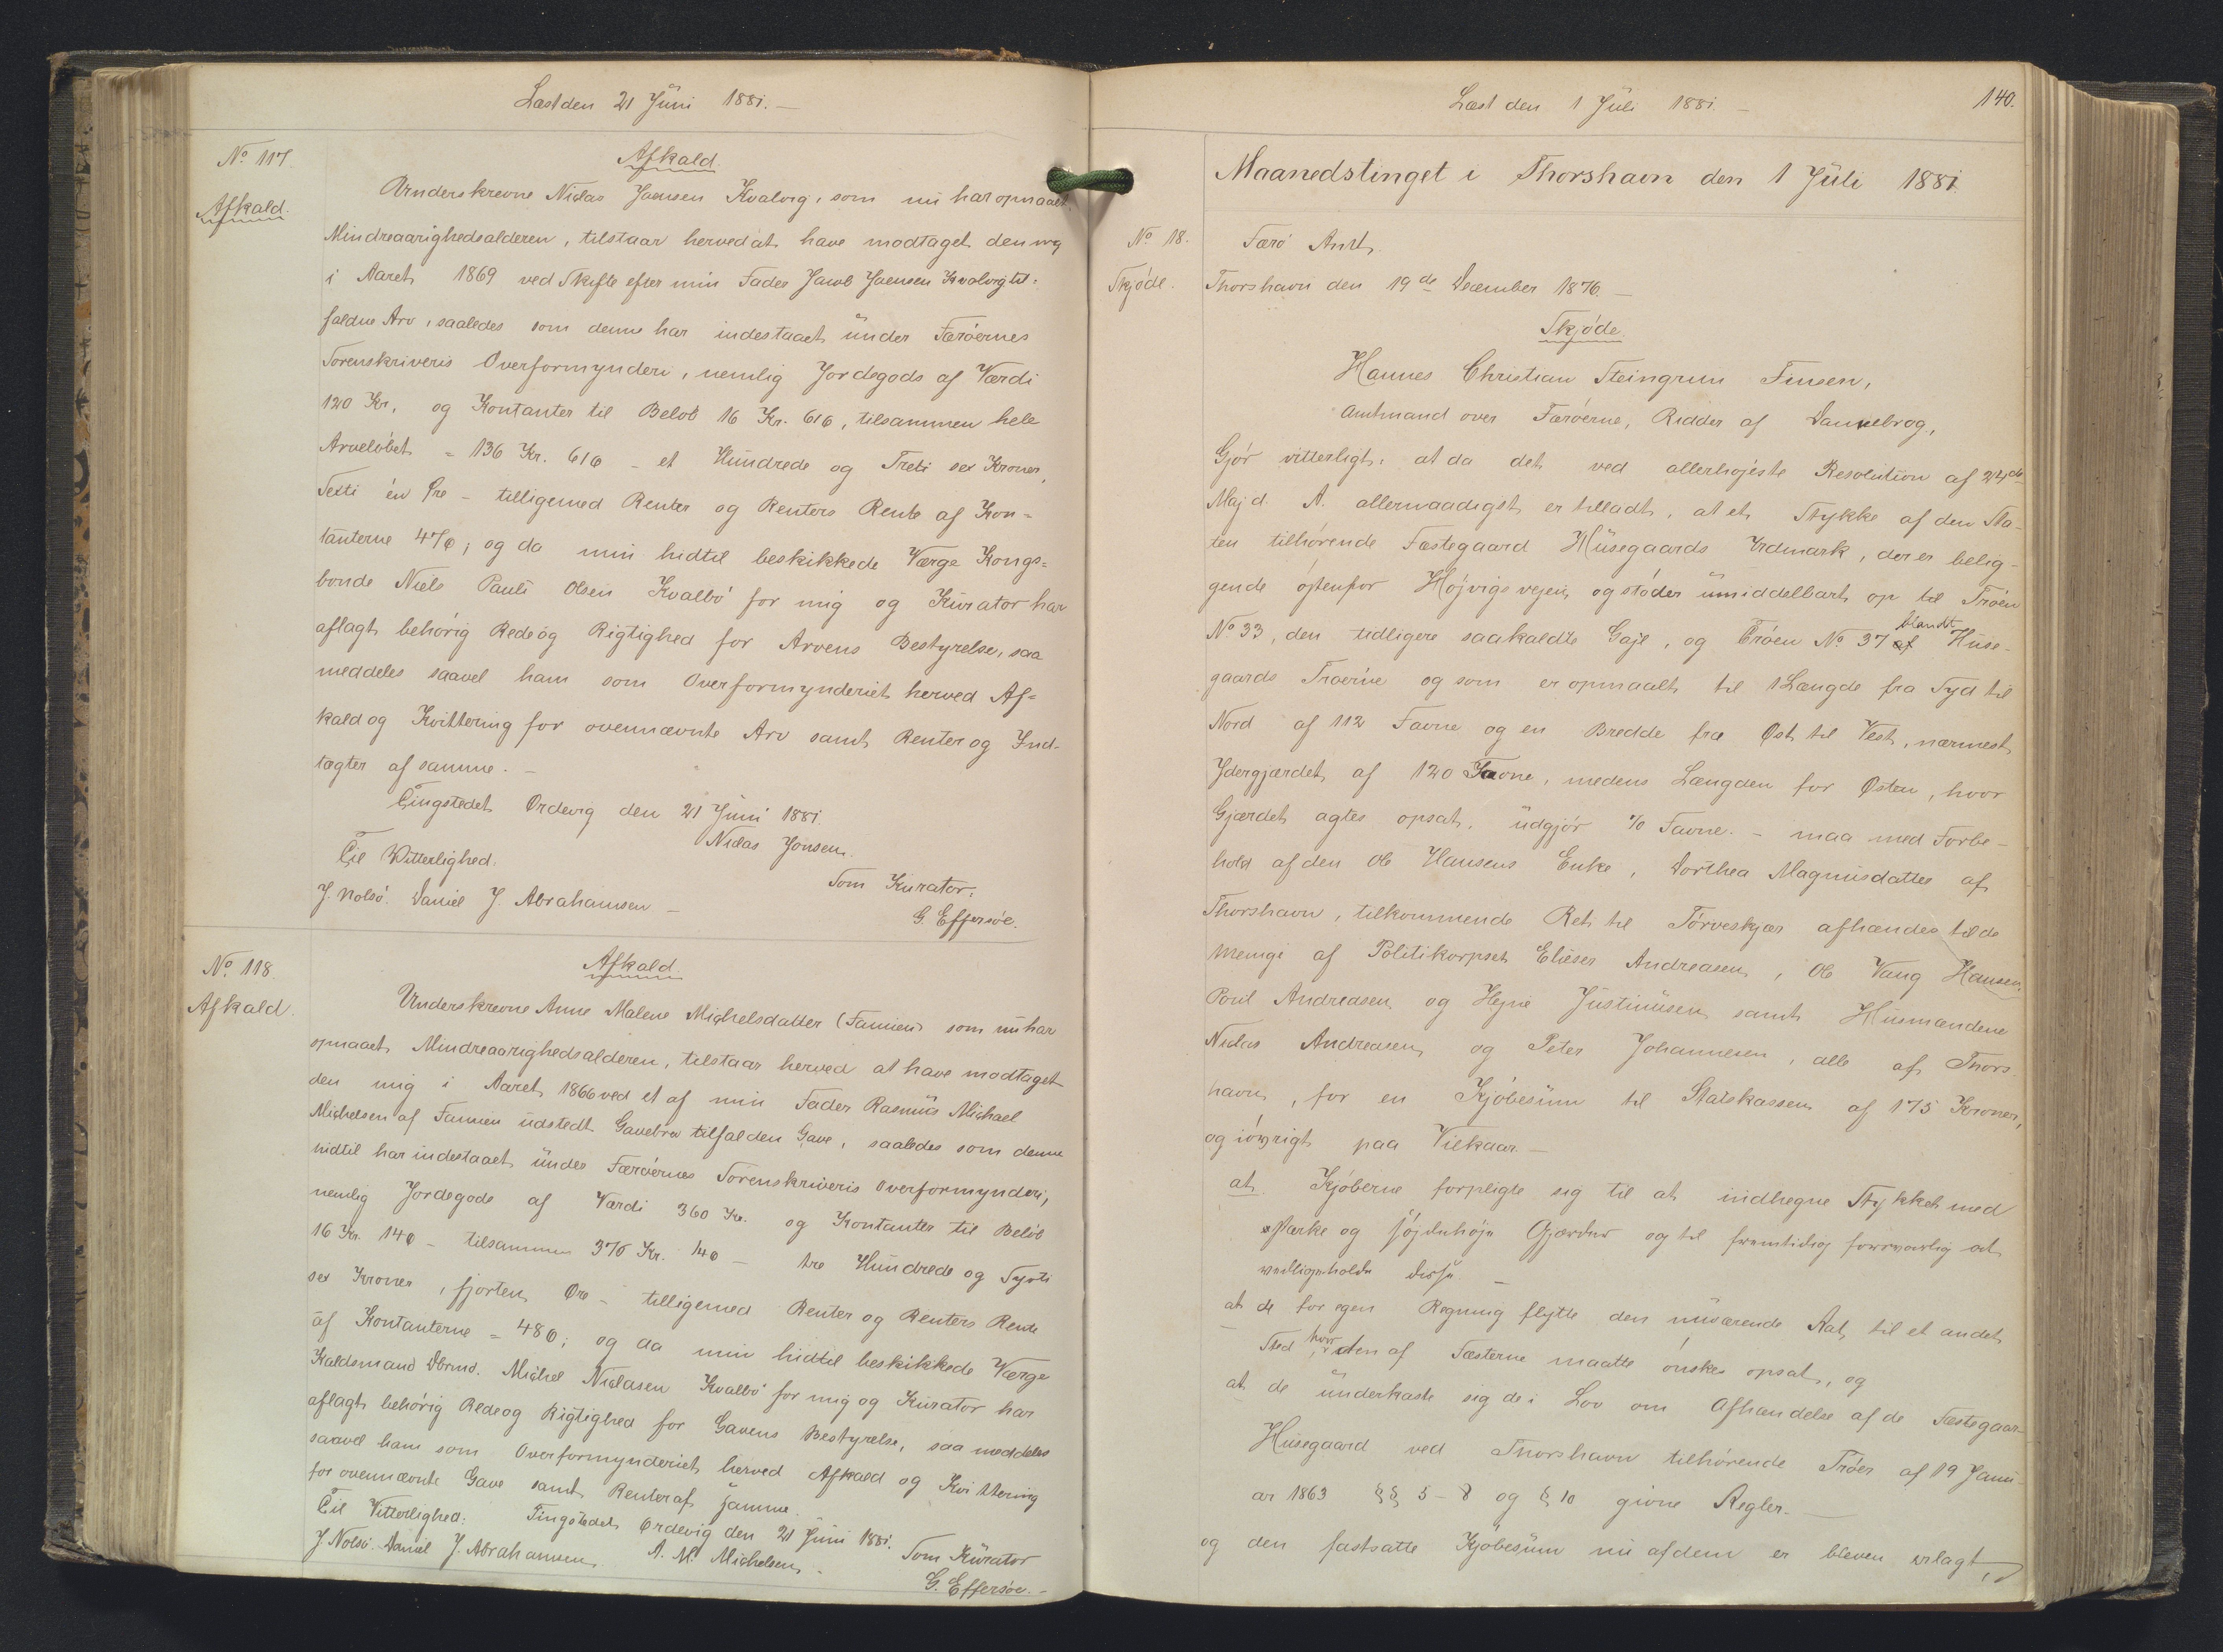 Læst den 21 Juni 1881. —
No 117.
Afkald.
Afkald.
Underskrevne Niclas Joensen Kvalvig, som nu har opnaaet
Mindreaarighedsalderen, tilstaar herved at have modtaget den mig
i Aaret 1869 ved Skifte efter min Fader Jacob Joensen Kvalvig til-
faldne Arv, saaledes som denne har indestaaet under Færøernes
Sorenskriveris Overformynderi, nemlig Jordegods af Værdi
120 Kr. og Kontanter til Beløb 16 Kr. 61ø, tilsammen hele
Arveløbet = 136 Kr. 61ø — et Hundrede og Treti sex Kroner,
Sexti én Øre — tilligemed Renter og Renters Rente af Kon-
tanterne 47ø; og da min hidtil beskikkede Værge Kongs-
bonde Niels Pauli Olsen Kvalbø for mig og Kurator har
aflagt behørig Rede og Rigtighed for Arvens Bestyrelse, saa
meddeles saavel ham som Overformynderiet herved Af-
kald og Kvittering for ovennævnte Arv samt Renter og Ind-
tægter af samme. —
Tingstedet Ordevig den 21 Juni 1881.
Niclas Jonsen.
Til Vitterlighed:
Som Kurator:
J. Nolsø. Daniel J. Abrahamsen —
G. Effersøe.
No 118.
Afkald.
Afkald
Underskrevne Anne Malene Michelsdatter (Famien) som nu har
opnaaet Mindreaarighedsalderen, tilstaar herved at have modtaget
den mig i Aaret 1866 ved et af min Fader Rasmus Michael
Michelsen af Famien udstedt Gavebrev tilfalden Gave, saaledes som denne
hidtil har indestaaet under Færøernes Sorenskriveris Overformynderi,
nemlig Jordegods af Værdi 360 Kr. og Kontanter til Beløb
16 Kr. 14ø — tilsammen 376 Kr. 14ø — tre Hundrede og Syvti
sex Kroner, fjorten Øre — tilligemed Renter og Renters Rente
af Kontanterne = 48ø; og da min hidtil beskikkede Værge
Kaldsmand Dbrmd. Michel Niclasen Kvalbø for mig og Kurator har
aflagt behørig Rede og Rigtighed for Gavens Bestyrelse, saa meddeles
saavel ham som Overformynderiet herved Afkald og Kvittering
for ovennævnte Gave samt Renter af samme.
Til Vitterlighed: Tingstedet Ordevig den 21 Juni 1881.
J. Nolsø. Daniel J. Abrahamsen. A. M. Michelsen. Som Kurator
G. Effersøe. —
Læst den 1 Juli 1881. —
140.
Maanedstinget i Thorshavn den 1 Juli 1881.
No 18.
Skjøde.
Færø Amt.
Thorshavn den 19de December 1876. —
Skjøde.
Hannes Christian Steingrim Finsen,
Amtmand over Færøerne, Ridder af Dannebrog,
Gjør vitterligt: at da det ved allerhøjeste Resolution af 24de
Maj d. A. allernaadigst er tilladt, at et Stykke af den Sta-
ten tilhørende Fæstegaard Husegaards Udmark, der er belig-
gende østenfor Højvigsvejen og støder umiddelbart op til Trøen
No 33, den tidligere saakaldte Eaje, og Trøen No 37 af blandt Huse-
gaards Trøerne og som er opmaalt til 1 Længde fra Syd til
Nord af 112 Favne og en Bredde fra Øst til Vest, nærmest
Ydergjærdet af 120 Favne, medens Længden for Østen, hvor
Gjærdet agtes opsat, udgjør 70 Favne. — maa med Forbe-
hold af den Ole Hansens Enke, Dorthea Magnusdatter af
Thorshavn, tilkommende Ret til Tørveskjær afhændes til de
Menige af Politikorpset Elieser Andreasen, Ole Vang Hansen,
Poul Andreasen og Hejne Justinusen samt Husmændene
Niclas Andreasen og Peter Johannesen, alle af Thors-
havn, for en Kjøbesum til Statskassen af 175 Kroner,
og iøvrigt paa Vilkaar —
at Kjøberne forpligte sig til at indhegne Stykket med
stærke og høje Gjærder og til fremtidig forsvarlig at
vedligeholde disse —
at de for egen Regning flytte den nuværende Rat til et andet
Sted, hvor den af Fæsterne maatte ønskes opsat, og
at de underkaste sig de i Lov om Afhændelse af de Fæstegaar-
Husegaard ved Thorshavn tilhørende Trøer af 19 Janu-
ar 1863 §§ 5-8 og § 10 givne Regler. —
og den fastsatte Kjøbesum nu af dem er bleven erlagt,